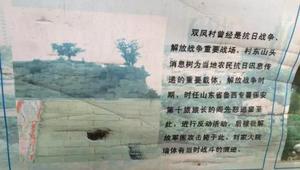 双凤村曾经是抗日战争、
解放战争重要战场，村东山头
消息树为当地农民抗日讯息传
递的重要载体，解放战争时
期，时任山东省鲁西专署保安
第十旅旅长的阎先彤逃窜至
此，进行反动活动，后被我解
放军围攻击毙于此，刘家大院
墙体有当时战斗的痕迹。